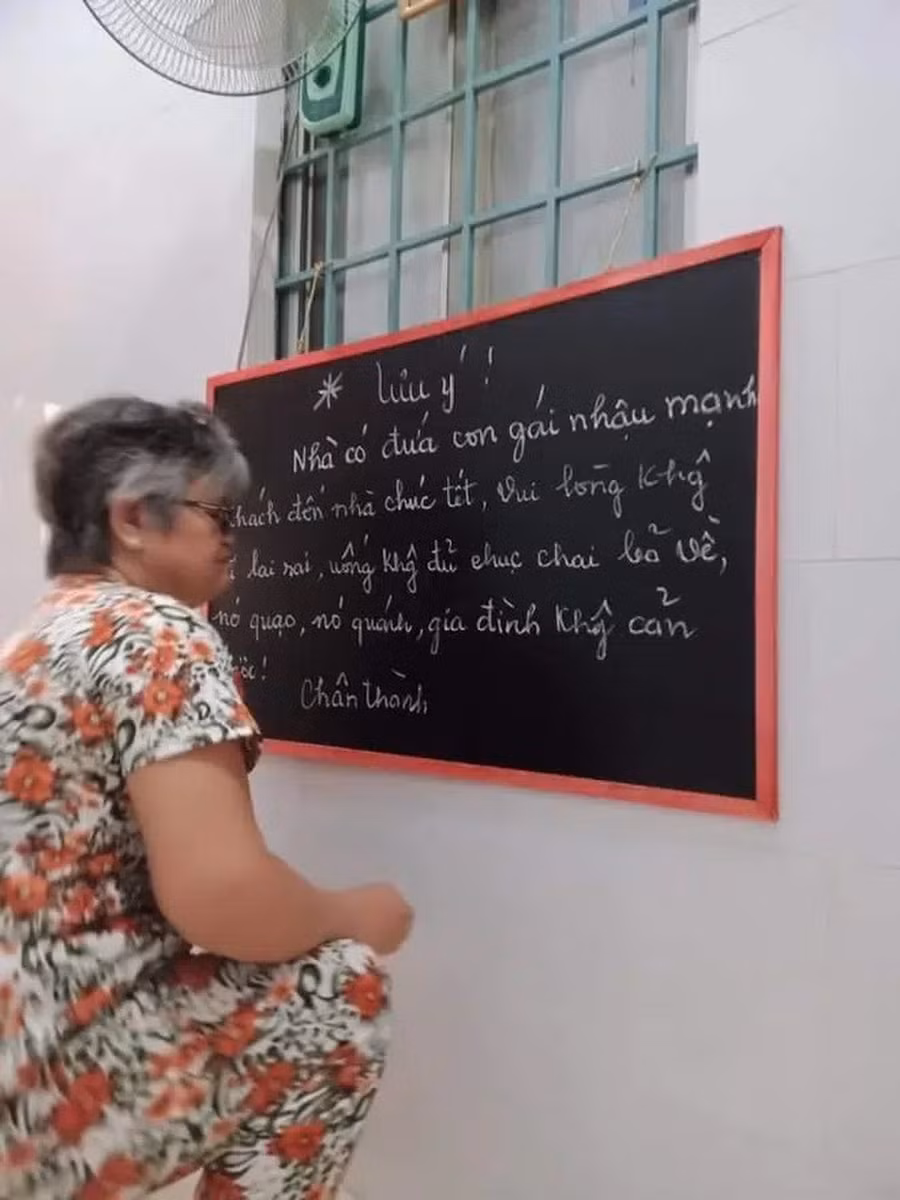 * Lưu ý !
Nhà có đứa con gái nhậu mạnh
khách đến nhà chúc tết, vui lòng Khg
lai rai, uống Khg đủ chục chai bỏ về,
nó quạo, nó quánh, gia đình Khg cản
Chân thành